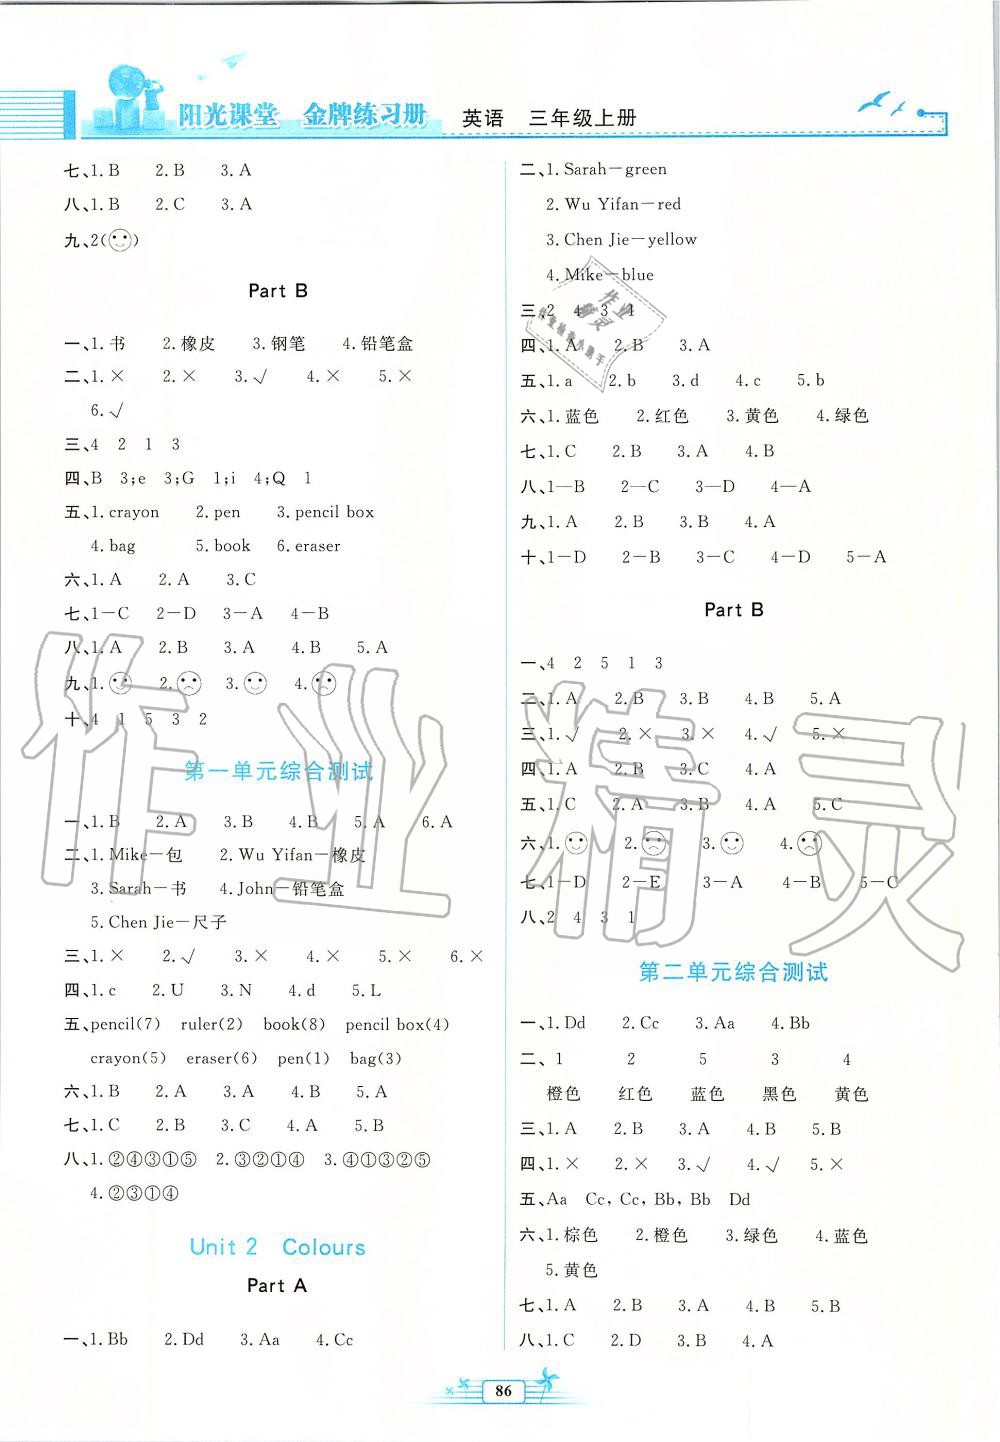 阳光课堂 金牌练习册 英语 三年级上册
七、1. B 2. B 3. A
八、1. B 2. C 3. A
九、2( )
Part B
一、1. 书 2. 橡皮 3. 钢笔 4. 铅笔盒
二、1. × 2. × 3. √ 4. × 5. ×
6. √
三、4 2 1 3
四、B 3;e 3;G 1;i 4;Q 1
五、1. crayon 2. pen 3. pencil box
4. bag 5. book 6. eraser
六、1. A 2. A 3. C
七、1—C 2—D 3—A 4—B
八、1. A 2. B 3. A 4. B 5. A
九、1. 2. 3. 4.
十、4 1 5 3 2
第一单元综合测试
一、1. B 2. A 3. B 4. B 5. A 6. A
二、1. Mike—包 2. Wu Yifan—橡皮
3. Sarah—书 4. John—铅笔盒
5. Chen Jie—尺子
三、1. × 2. √ 3. × 4. × 5. × 6. ×
四、1. c 2. U 3. N 4. d 5. L
五、pencil(7) ruler(2) book(8) pencil box(4)
crayon(5) eraser(6) pen(1) bag(3)
六、1. B 2. A 3. A 4. B 5. A
七、1. C 2. B 3. C 4. A 5. B
八、1. ②④③①⑤ 2. ③②①④ 3. ④①③②⑤
4. ②③①④
Unit 2 Colours
Part A
一、1. Bb 2. Dd 3. Aa 4. Cc
二、1. Sarah—green
2. Wu Yifan—red
3. Chen Jie—yellow
4. Mike—blue
三、2 4 3 1
四、1. A 2. B 3. A
五、1. a 2. b 3. d 4. c 5. b
六、1. 蓝色 2. 红色 3. 黄色 4. 绿色
七、1. C 2. B 3. A 4. B
八、1—B 2—C 3—D 4—A
九、1. A 2. B 3. B 4. A
十、1—D 2—B 3—C 4—D 5—A
Part B
一、4 2 5 1 3
二、1. A 2. B 3. B 4. B 5. A
三、1. √ 2. × 3. × 4. √ 5. ×
四、1. A 2. B 3. A 4. A 5. B
五、1. C 2. A 3. B 4. A 5. C
六、1. 2. 3. 4.
七、1—D 2—E 3—A 4—B 5—C
八、2 4 3 1
第二单元综合测试
一、1. Dd 2. Cc 3. Aa 4. Bb
二、1 2 5 3 4
橙色 红色 蓝色 黑色 黄色
三、1. A 2. B 3. A 4. B 5. B
四、1. × 2. × 3. √ 4. √ 5. ×
五、Aa Cc, Cc, Bb, Bb Dd
六、1. 棕色 2. 橙色 3. 绿色 4. 蓝色
5. 黄色
七、1. A 2. B 3. A 4. B 5. B
八、1. C 2. D 3. B 4. A
86
作业精灵
作业
精灵